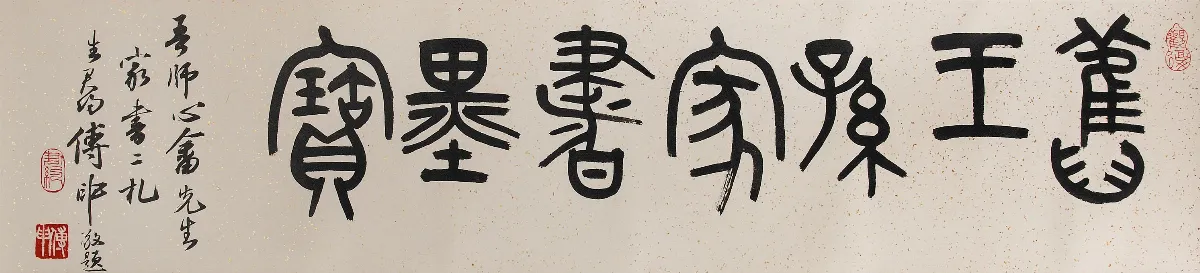 舊王孫家書墨寶
吾師心畬先生
家書二札
生君約傅申敬題
傅申